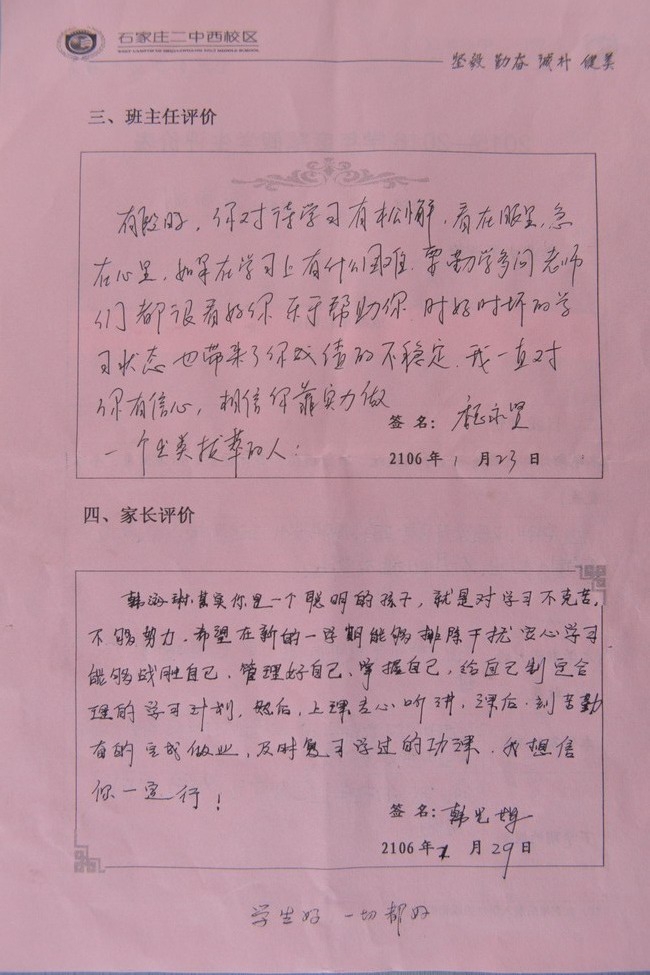 石家庄二中西校区
坚毅 勤奋 诚朴 健美
三、班主任评价
有段时,你对待学习有松懈,看在眼里,急
在心里,如果在学习上有什么困难,要勤学多问,老师
们都很看好你,乐于帮助你,时好时坏的学
习状态也带来了你成绩的不稳定,我一直对
你有信心,相信你靠实力做
签 名:
一个出类拔萃的人!
2106 年 1 月 23 日
四、家长评价
其实你是一个聪明的孩子,就是对学习不克苦,
不够努力.希望在新的一学期能够排除干扰安心学习
能够战胜自己、管理好自己、掌握自己,给自己制定合
理的学习计划,然后,上课专心听讲,课后刻苦勤
奋的完成做业,及时复习学过的功课.我想信
你一定行!
签 名:韩
2106 年 1 月 29 日
学生好 一切都好